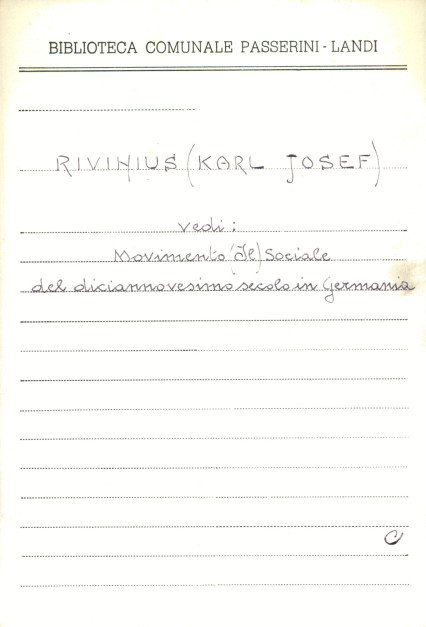 BIBLIOTECA COMUNALE PASSERINI - LANDI
RIVINIUS (KARL JOSEF)
vedi:
Movimento (Il) Sociale
del diciannovesimo secolo in Germania
C